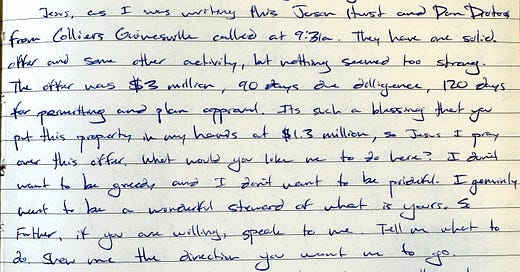 Jesus, as I was writing this Jason Hurst and Dan Drotos
from Colliers Gainesville called at 9:31a. They have one solid
offer and some other activity, but nothing seemed too strong.
The offer was $3 million, 90 days due dilligence, 120 days
for permitting and plan approval. Its such a blessing that you
put this property in my hands at $1.3 million, so Jesus I pray
over this offer. What would you like me to do here? I don't
want to be greedy and I don't want to be prideful. I genuinly
want to be a wonderful steward of what is yours. So
Father, if you are willing, speak to me. Tell me what to
do. Show me the direction you want me to go.